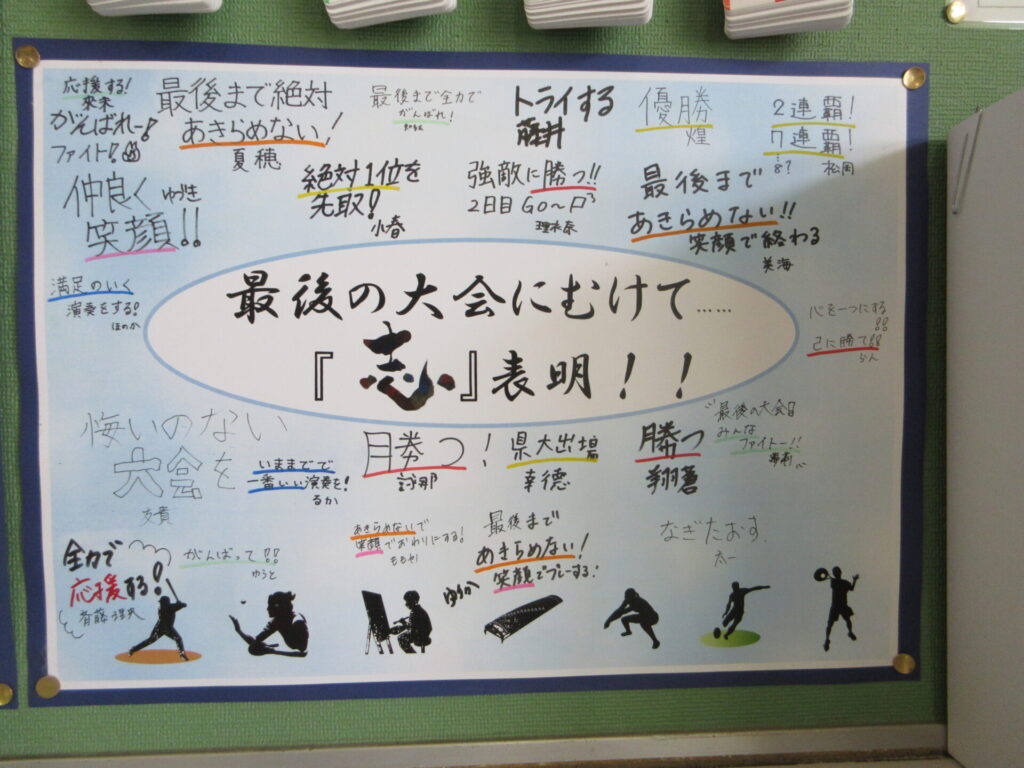 応援する!
来未
がんばれー!
ファイト!
最後まで絶対
あきらめない!
夏穂
最後まで全力で
がんばれ!
トライする
藤井
優勝
煌
2連覇!
7連覇!
8?
松岡
仲良く ゆづき
笑顔!!
絶対1位を
先取!
小春
強敵に勝つ!!
2日目GO~
理水奈
最後まで
あきらめない!!
笑顔で終わる
美海
満足のいく
演奏をする!
ほのか
最後の大会にむけて……
『志』表明!!
心を一つにする
!!
己に勝て!!
らん
悔いのない
大会を
友貴
いままでで
一番いい演奏を!
るか
勝つ!
県大出場
幸徳
勝つ
翔蒼
最後の大会
みんな
ファイトー!!
全力で
応援する!
斉藤
がんばって!!
ゆうと
あきらめないで
笑顔でおわりにする!
ももか
最後まで
あきらめない!
笑顔でプレーする!
ゆりか
なぎたおす.
太一